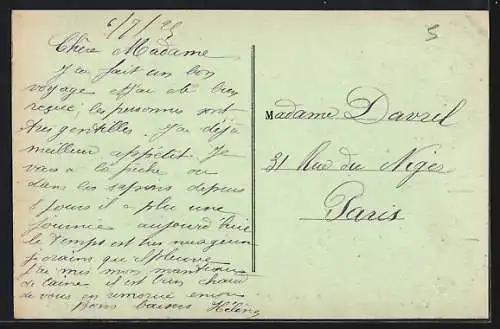 6/7/25
5
Chère Madame
J'ai fait un bon
voyage J'ai été bien
reçue, les personnes sont
très gentilles. J'ai déjà
meilleur appétit. Je
vais à la pêche ou
dans les sapins depuis
5 jours il a plu une
journée aujourd'hui
le temps est très nuageux
je crains qu'il pleuve
J'ai mis mon manteau
de laine il est bien chaud
de vous en
bons baisers Hélène
Madame Davril
31 Rue du Niger
Paris